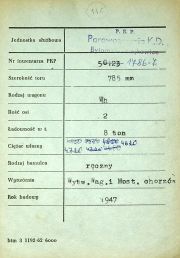 116
P. K. P.
Jednostka służbowa Parowozownia K.D.
Nr inwentarza PKP 50123 1786-7
Szerokość toru 785 mm
Rodzaj wagonu Wh
Ilość osi 2
Ładowność w t 8 ton
Ciężar własny
Rodzaj hamulca ręczny
Wytwórnia Wytw.Wag.i Most. chorzów
Rok budowy 1947